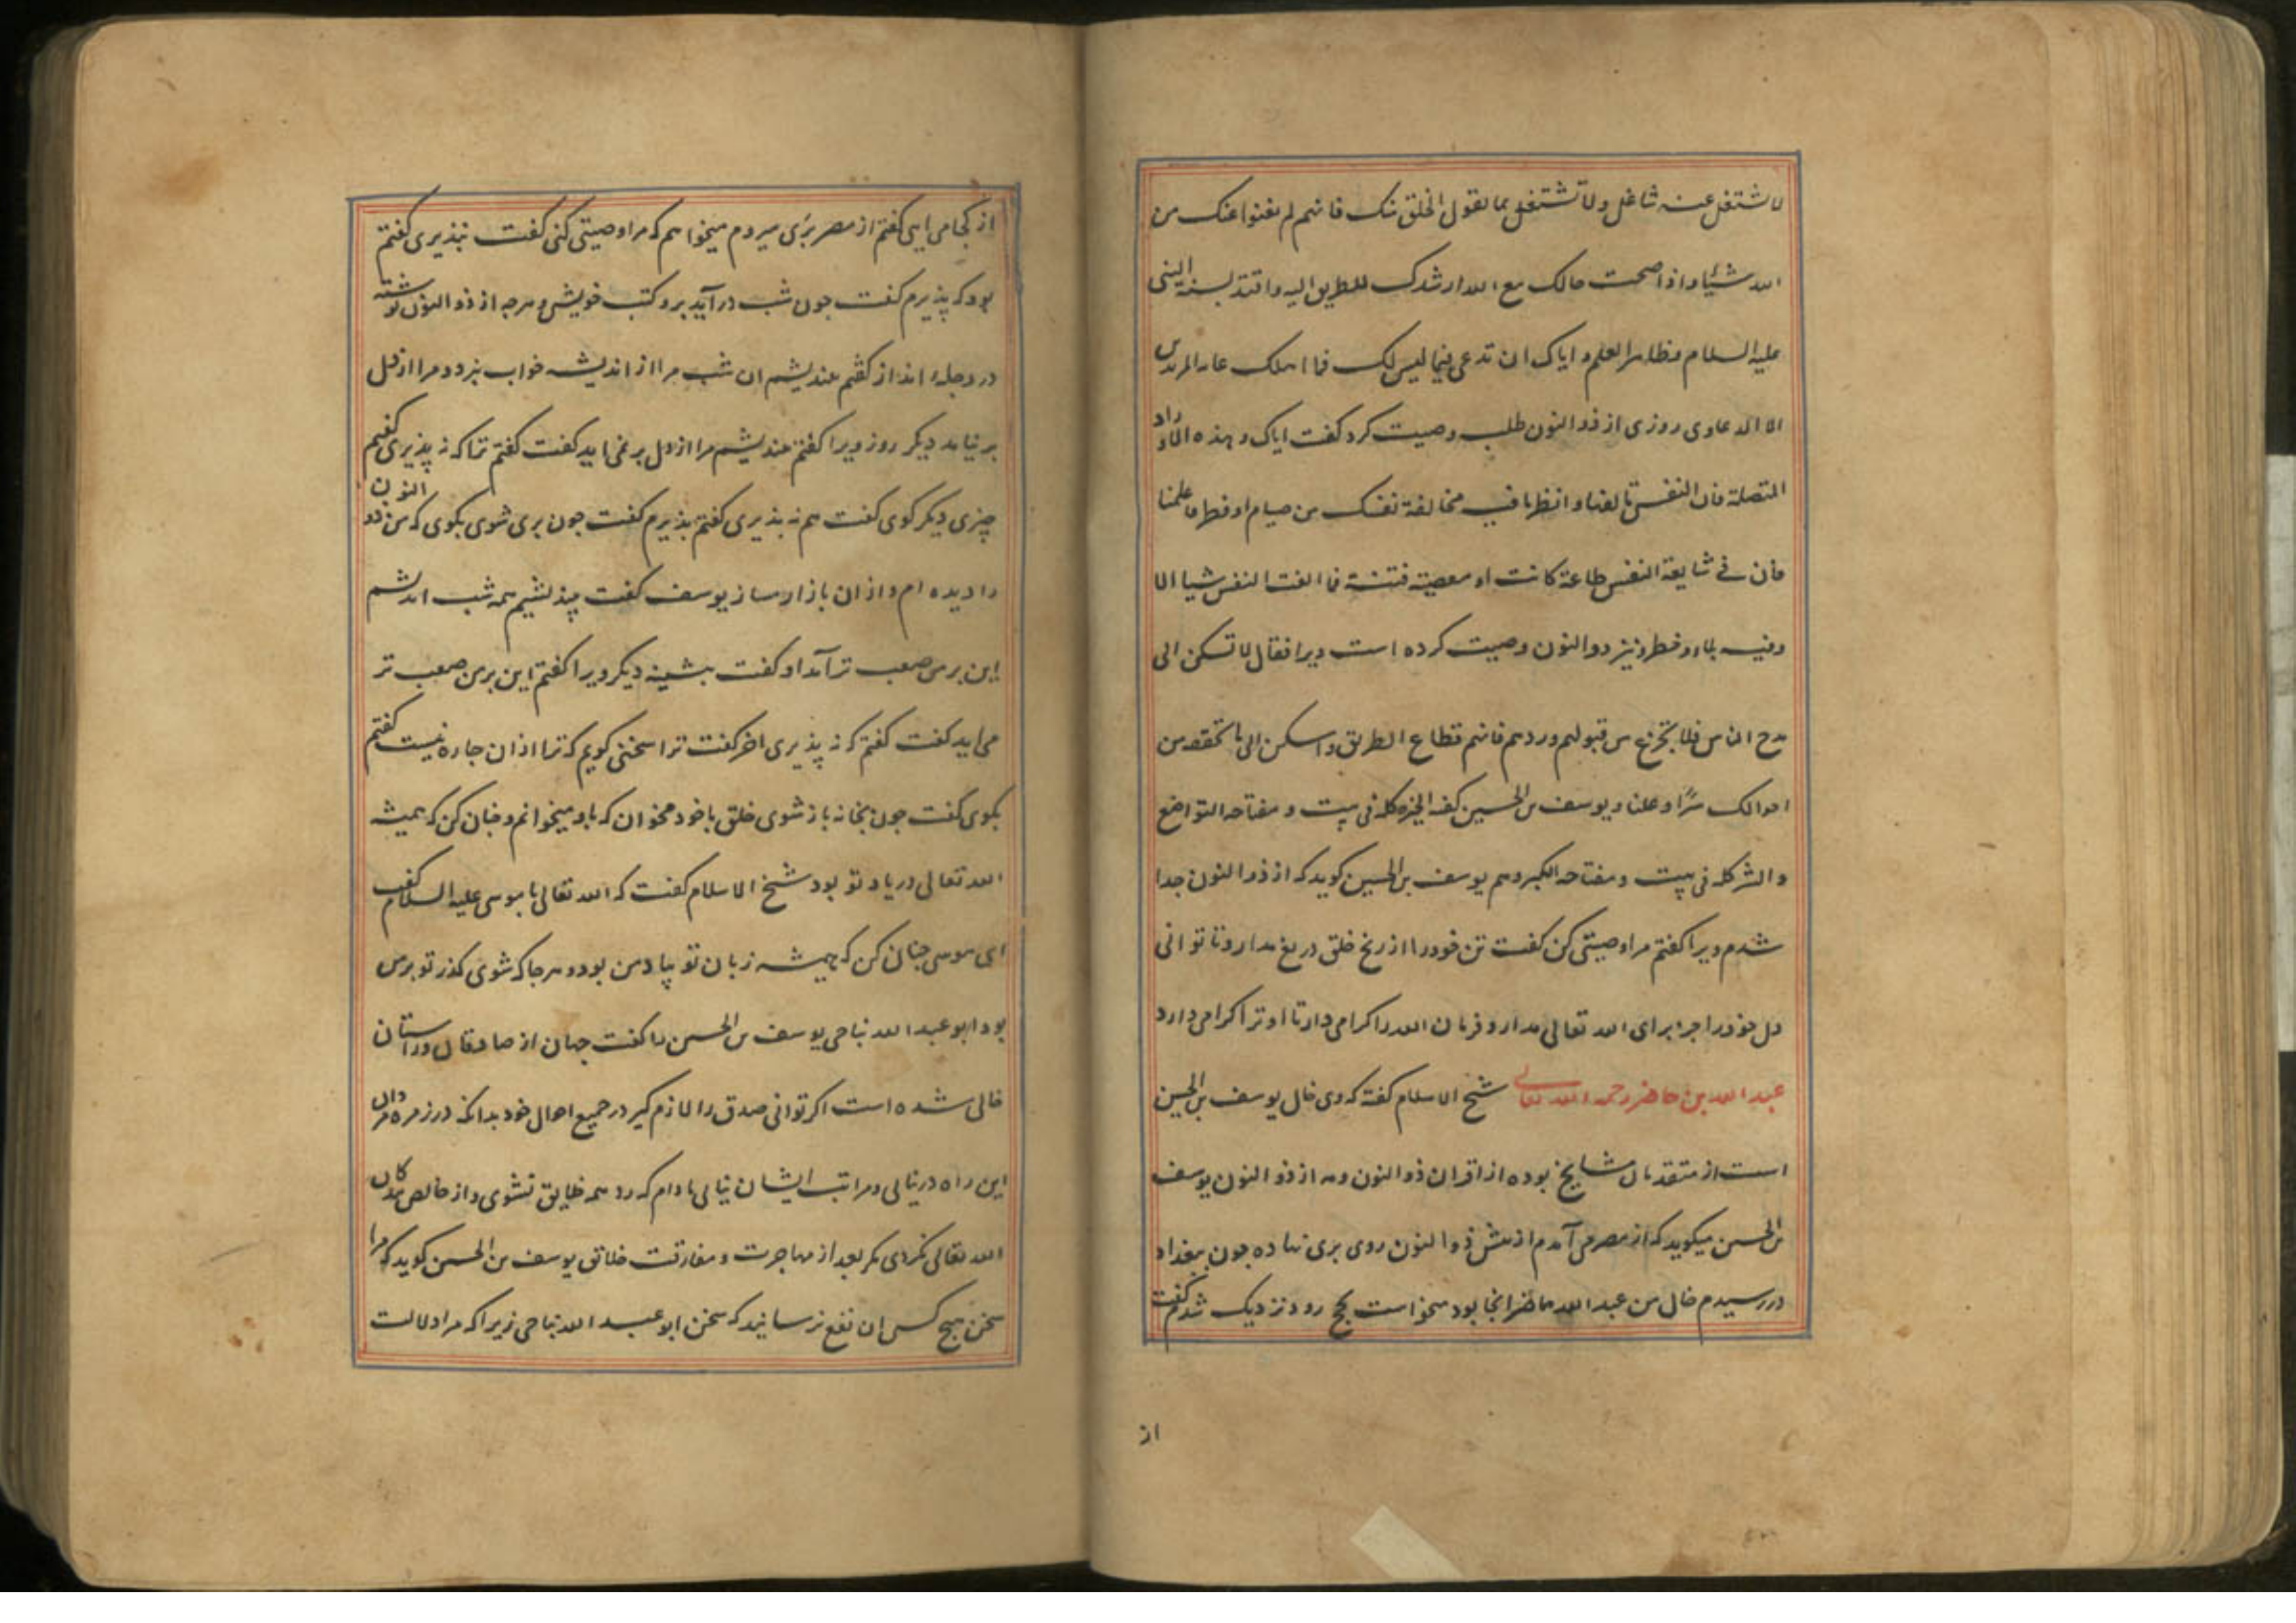 لا شتغل عنه شاغل ولا تشتغل بما یقول الخلق منک فانهم لم یغنوا عنک من
الله شیئا و اذا صحت حالک مع الله ارشدک للطریق الیه واقتد بسنة النبی
علیه السلام و ظاهر العلم و ایاک ان تدعی فیما لیس لک فما اهلک عامه المریدین
الا الدعاوی روزی از ذو النون طلب وصیت کرد گفت ایاک و هذه الاوراد
المتصلة فان النفس تالفها و انظر ما فیه مخالفة نفسک من صیام او فطر فاعلمنا
فان فی شایعة النفس طاعة کانت او معصیة فتنة فما الفت النفس شیا الا
وفیه بلاء و خطر و نیز ذوالنون وصیت کرده است ویرا فقال لا تسکن الی
مدح الناس فلا تجزع من قبولهم و ردهم فانهم قطاع الطریق و اسکن الی ما تحققه من
احوالک سرًا و علنا و یوسف بن الحسین گفت الخیر کله فی بیت و مفتاحه التواضع
و الشر کله فی بیت و مفتاحه الکبر و هم یوسف بن الحسین گوید که از ذو النون جدا
شدم ویرا گفتم مرا وصیتی کن گفت تن خود را از رنج خلق دریغ مدار و تا توانی
دل خود را جز برای الله تعالی مدار و فرمان الله را گرامی دار تا او ترا گرامی دارد
عبد الله بن حاضر رحمه الله تعالی شیخ الاسلام گفته که وی خال یوسف بن الحسین
است از متقدمان مشایخ بوده از اقران ذو النون و مه از ذو النون یوسف
بن الحسین میگوید که از مصر می آمدم از پیش ذو النون روی بری نهاده چون ببغداد
در رسیدم خال من عبد الله حاضر انجا بود میخواست بحج رود نزدیک شدم گفت
از
از کجا می ایی گفتم از مصر بری میروم میخواهم که مرا وصیتی کنی گفت نپذیری گفتم
بود که پذیرم گفت چون شب در آید برو کتب خویش و هرچه از ذو النون نوشته
در دجله انداز گفتم بیندیشم ان شب مرا از اندیشه خواب نبرد و مرا از دل
بر نیامد دیگر روز ویرا گفتم بیندیشم مرا از دل بر نمی اید گفت گفتم ترا که نه پذیری گفتم
چیزی دیگر گوی گفت هم نه پذیری گفتم پذیرم گفت چون بری شوی بگوی که من ذو النون
را دیده ام و از ان بازار مساز یوسف گفت بیندیشیم همه شب اندیشم
این بر من صعب تر آمد او گفت بیشینه دیگر ویرا گفتم این بر من صعب تر
می اید گفت گفتم که نه پذیری اخر گفت ترا سخنی گویم که ترا از ان چاره نیست گفتم
بگوی گفت چون بخانه باز شوی خلق با خود مخوان که باو میخوانم و چنان کن که همیشه
الله تعالی در یاد تو بود شیخ الاسلام گفت که الله تعالی با موسی علیه السلام گفت
ای موسی چنان کن که همیشه زبان تو بیاد من بود و هرجا که شوی گذر تو بر من
بود ابو عبد الله نباحی یوسف بن الحسن را گفت جهان از صادقان و راستان
خالی شده است اگر توانی صدق را لازم گیر در جمیع احوال خود بدانکه در زمره مردان
این راه در نیایی و مراتب ایشان نیابی مادام که رد همه خلایق نشوی و از خالص بندگان
الله تعالی نگردی مگر بعد از مهاجرت و مفارقت خلایق یوسف بن الحسن گوید که مرا
سخن هیچ کس ان نفع نرسانید که سخن ابو عبد الله نباحی زیرا که مرا دلالت